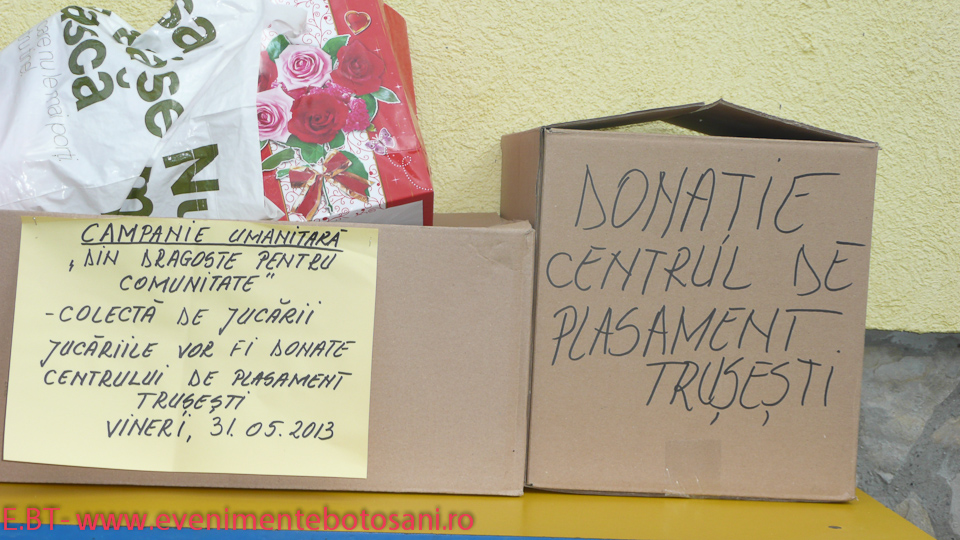 CAMPANIE UMANITARĂ
„DIN DRAGOSTE PENTRU
COMUNITATE"
- COLECTĂ DE JUCĂRII
JUCĂRIILE VOR FI DONATE
CENTRULUI DE PLASAMENT
TRUȘEȘTI
VINERI, 31.05.2013
DONAȚIE
CENTRUL DE
PLASAMENT
TRUȘEȘTI
E.BT- www.evenimentebotosani.ro